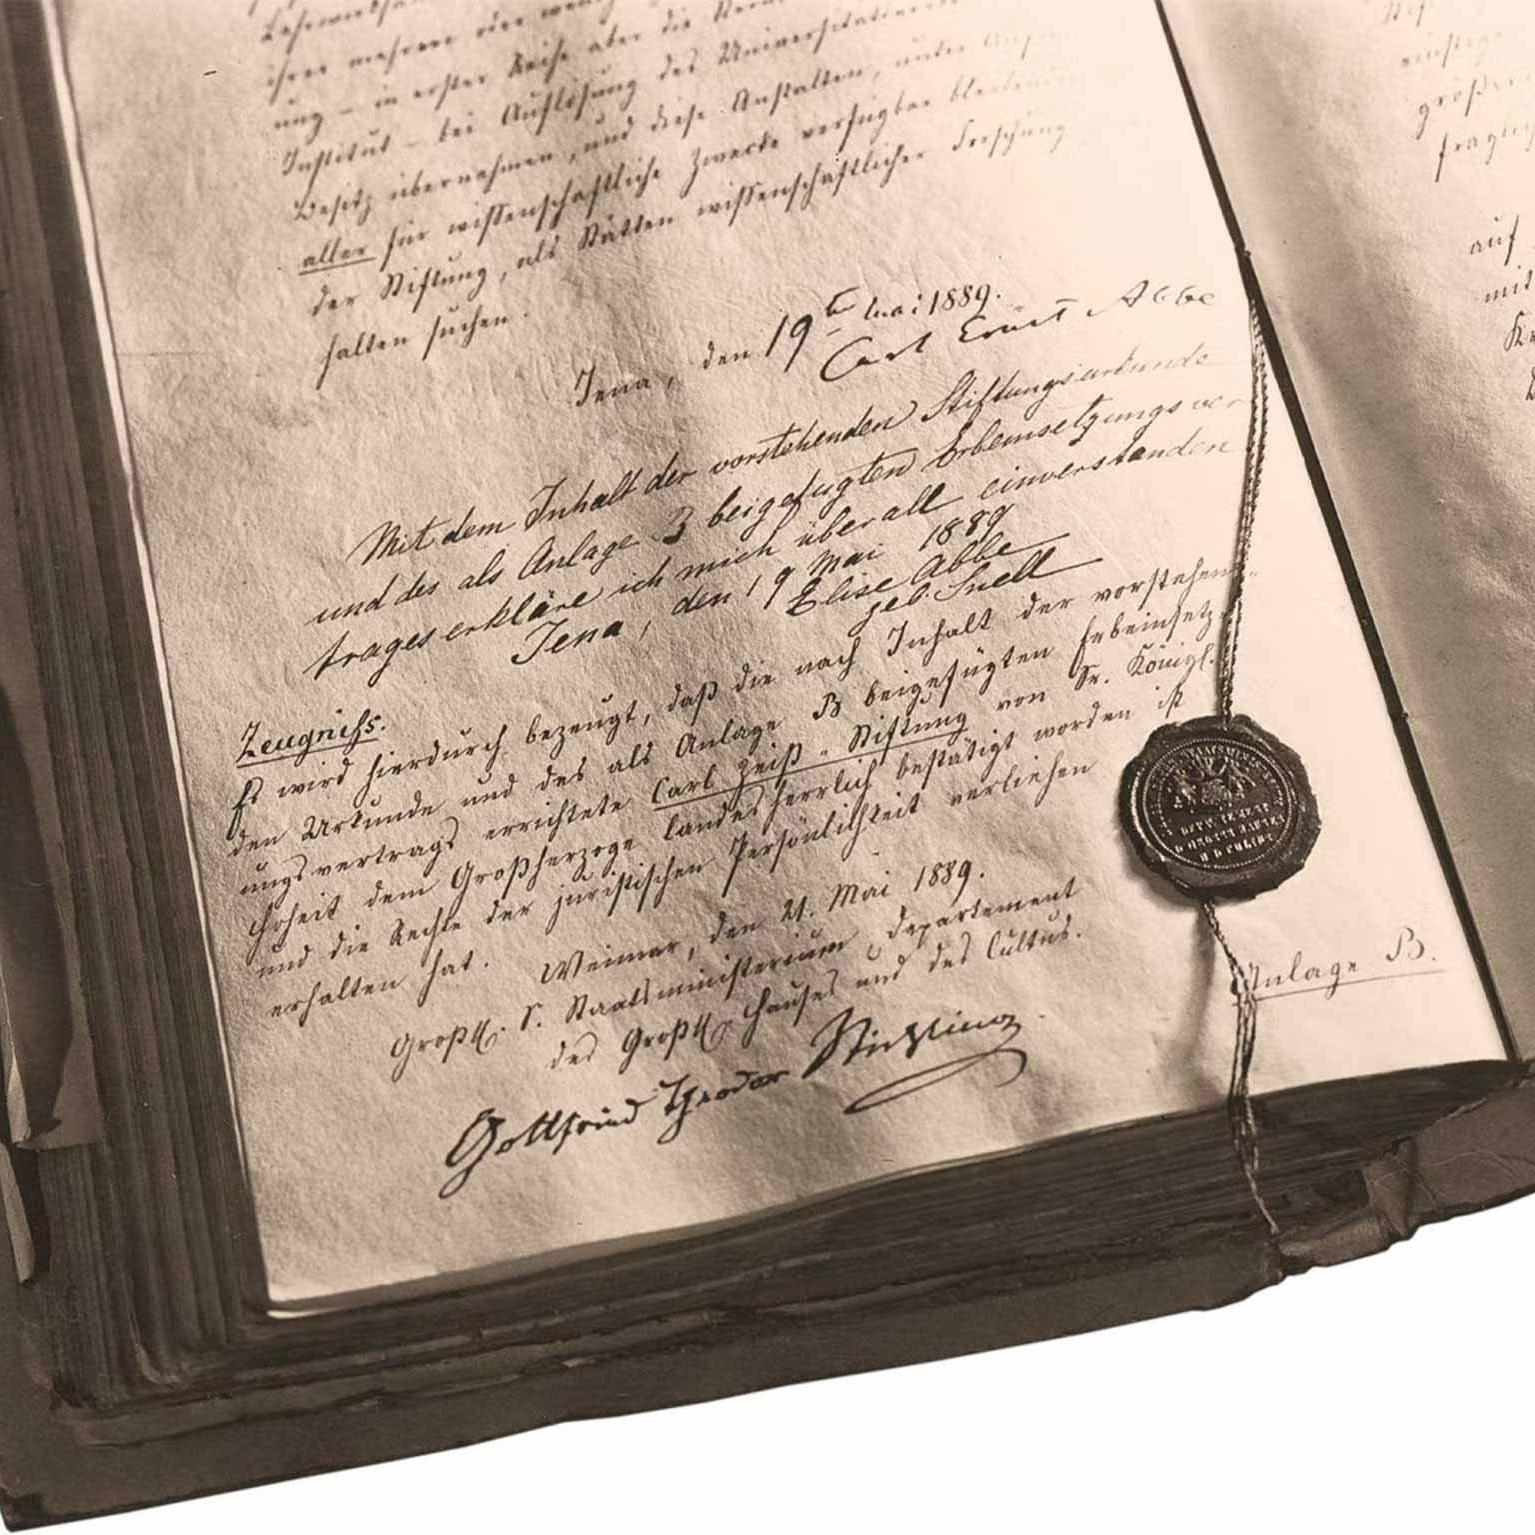 ihrer mehrere oder
ung – in erster Reihe aber die
Institut – bei Auflösung des Universitäts
Besitz übernehmen, und diese Anstalten, unter
aller für wissenschaftliche Zwecke verfügbar bleibenden
der Stiftung, als Stätten wissenschaftlicher Forschung
halten suchen.
Jena, den 19ten Mai 1889.
Carl Ernst Abbe
Mit dem Inhalt der vorstehenden Stiftungsurkunde
und des als Anlage B beigefügten Erbeinsetzungsver
trages erkläre ich mich überall einverstanden
Jena, den 19 Mai 1889
Elise Abbe
geb. Snell
Zeugniss.
Es wird hierdurch bezeugt, daß die nach Inhalt der vorstehen-
den Urkunde und des als Anlage B beigefügten Erbeinsetz-
ungsvertrags errichtete Carl Zeiß-Stiftung von Sr. Königl.
Hoheit dem Großherzoge landesherrlich bestätigt worden ist
und die Rechte der juristischen Persönlichkeit verliehen
erhalten hat.
Weimar, den 21. Mai 1889.
Großh. S. Staatsministerium, Departement
des Großh. Hauses und des Cultus.
Gottfried Theodor Stichling
Anlage B.
auf
mit